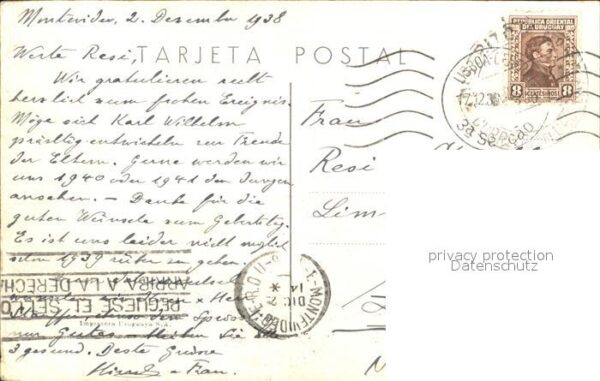 Montevideo, 2. Dezember 1938
TARJETA POSTAL
Werte Resi,
Wir gratulieren recht
herzlich zum frohen Ereignis.
Möge sich Karl Wilhelm
prächtig entwickeln zur Freude
der Eltern. Gerne werden wir
uns 1940 oder 1941 den Jungen
ansehen. – Danke für die
guten Wünsche zum Geburtstag.
Es ist uns leider nicht möglich
schon 1939 rüber zu gehen.
wünschen
nur Gutes. Bleiben Sie alle
3 gesund. Beste Grüsse
+ Frau.
Frau
Resi
Lim
REPUBLICA ORIENTAL
DEL URUGUAY
8 CENTESIMOS 8
3a Secção
PEGUESE EL SELLO
ARRIBA A LA DERECHA
Imprenta Uruguaya S.A.
MONTEVIDEO
DIC 2
14
privacy protection
Datenschutz